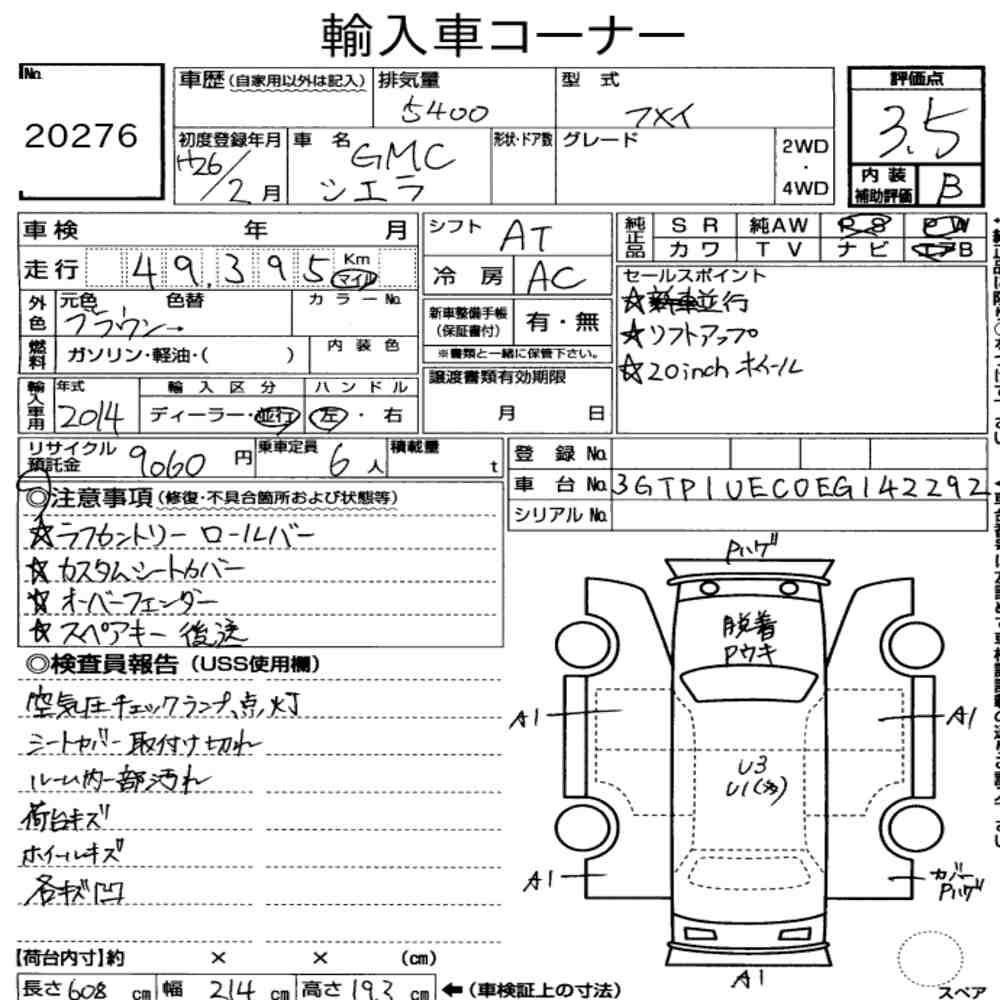 輸入車コーナー
No. 20276
車歴(自家用以外は記入) 排気量 5400 型式 フメイ
初度登録年月 H26/2月 車名 GMC シエラ 形状・ドア数 グレード 2WD・4WD
評価点 3.5
内装補助評価 B
車検 年 月
走行 49,395 Km マイル
外色 元色 ブラウン→ 色替 カラーNo.
燃料 ガソリン・軽油・( ) 内装色
輸入車用 年式 2014 輸入区分 ディーラー・並行 ハンドル 左・右
シフト AT
冷房 AC
新車整備手帳(保証書付) 有・無
※書類と一緒に保管下さい。
譲渡書類有効期限
月 日
純正品 SR 純AW PS PW
カワ TV ナビ エアB
セールスポイント
☆新車並行
☆リフトアップ
☆20inchホイール
リサイクル預託金 9060円 乗車定員 6人 積載量 t
登録No.
車台No. 3GTP1UEC0EG142292
シリアルNo.
◎注意事項(修復・不具合箇所および状態等)
☆ラフカントリー ロールバー
☆カスタムシートカバー
☆オーバーフェンダー
☆スペアキー 後送
◎検査員報告(USS使用欄)
空気圧チェックランプ点灯
シートカバー取付け切れ
ルーム内一部汚れ
荷台キズ
ホイールキズ
各キズ凹
Pハゲ
脱着
Pウキ
A1
A1
U3
U1(多)
A1
カバーPハゲ
A1
スペア
【荷台内寸】約 × × (cm)
長さ 608 cm 幅 214 cm 高さ 193 cm ←(車検証上の寸法)